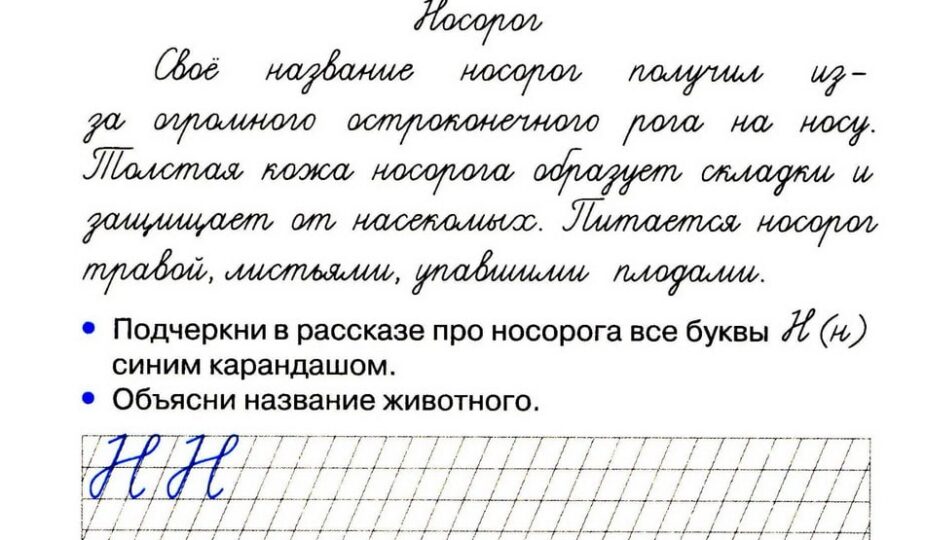 Носорог
Своё название носорог получил из-
за огромного остроконечного рога на носу.
Толстая кожа носорога образует складки и
защищает от насекомых. Питается носорог
травой, листьями, упавшими плодами.
• Подчеркни в рассказе про носорога все буквы Н (н)
синим карандашом.
• Объясни название животного.
Н Н